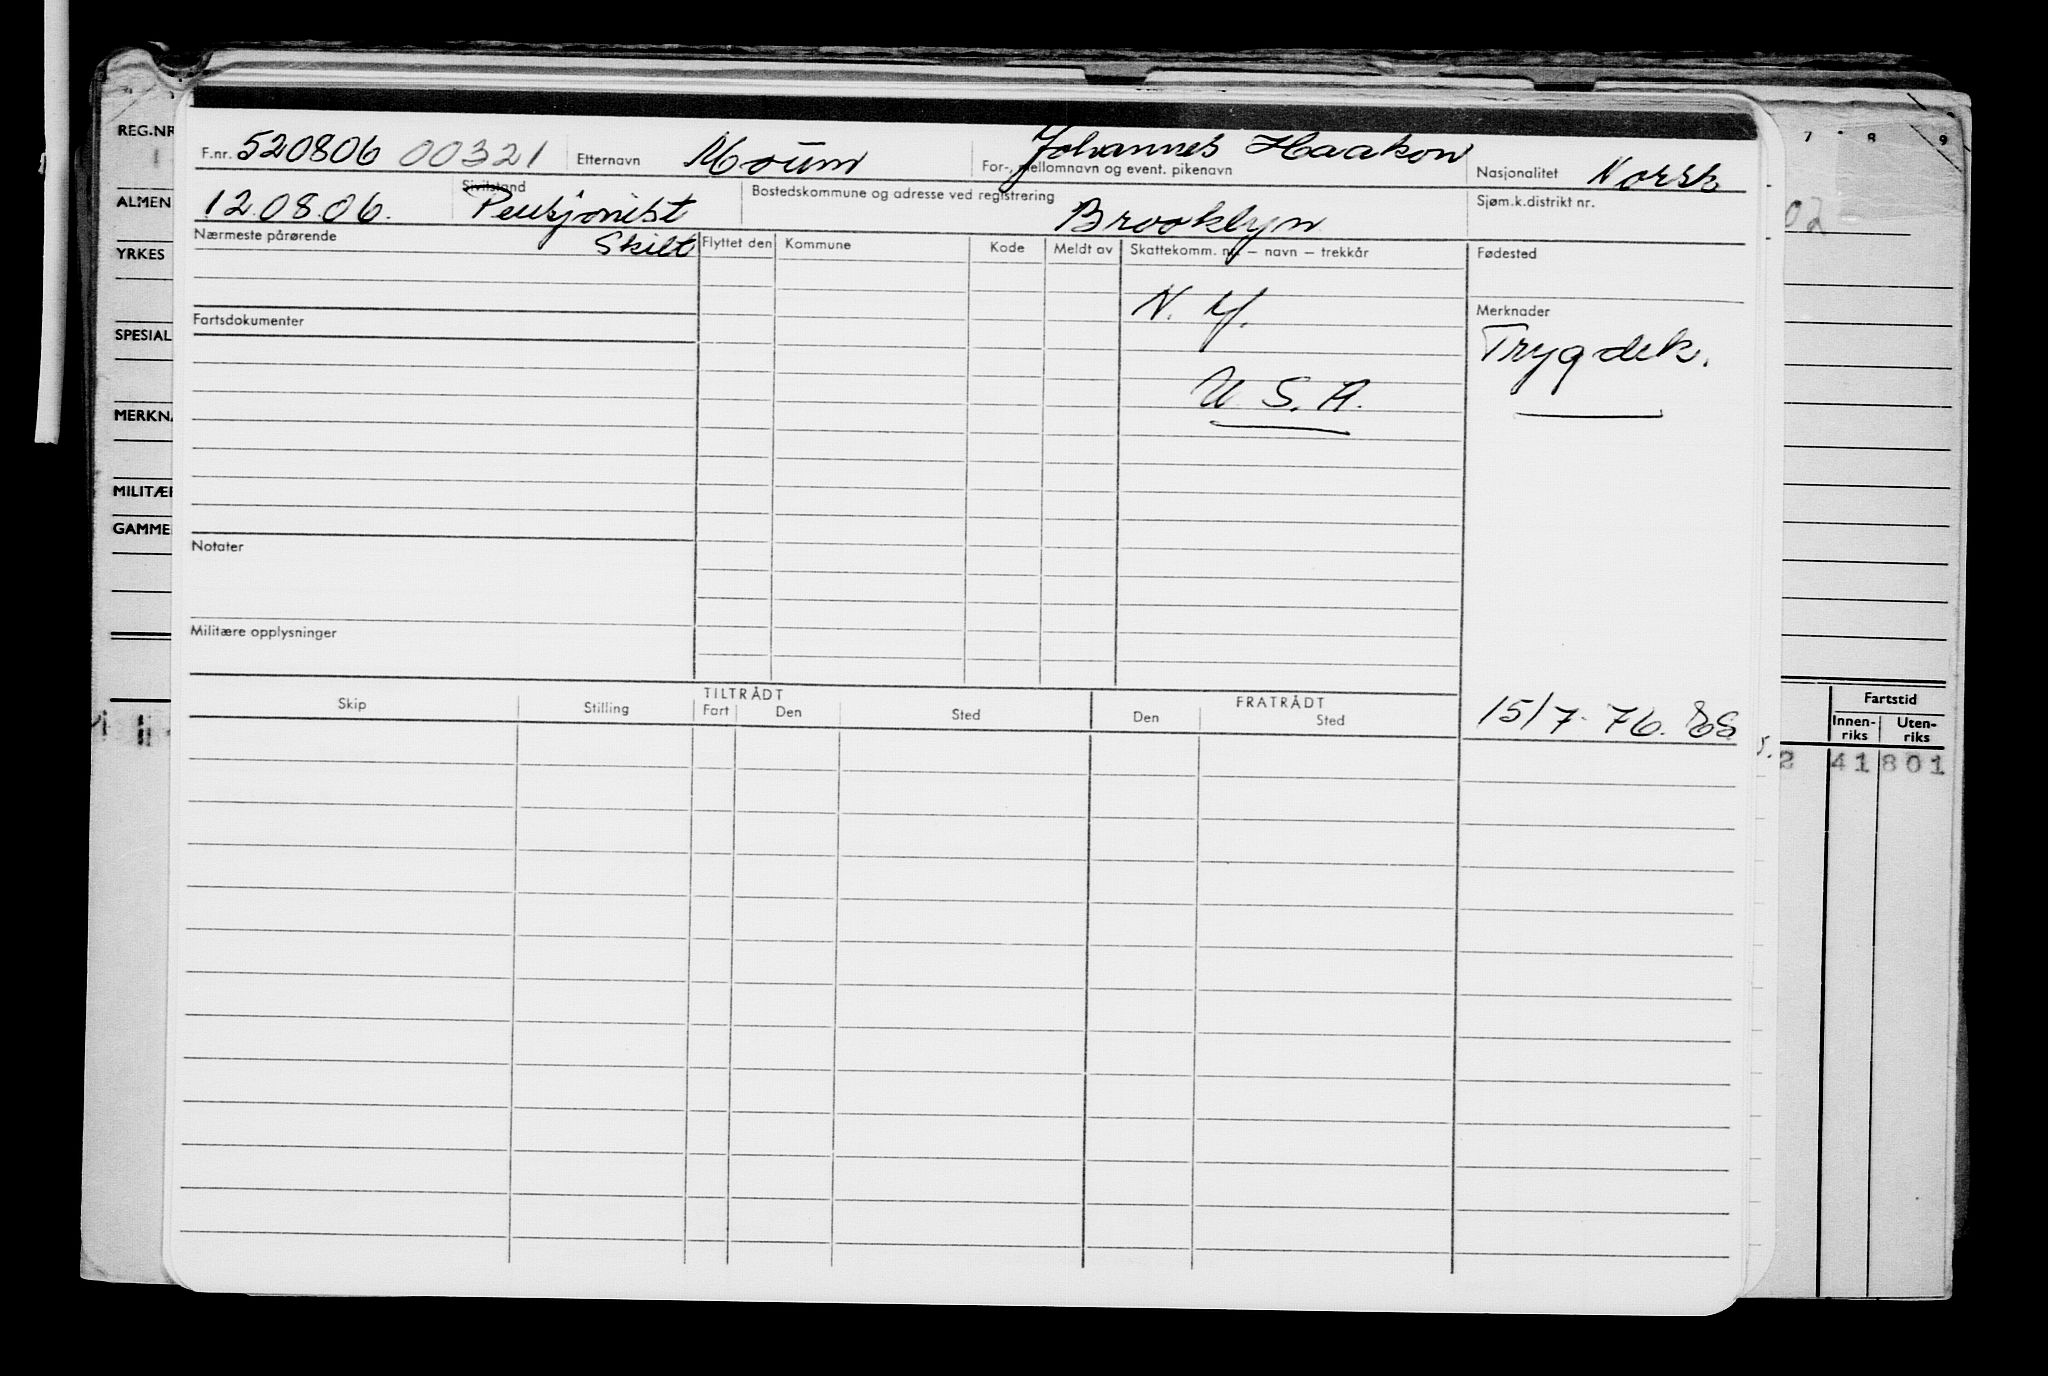 REG.NR
7 8 9
F.nr. 520806 00321 Etternavn Moum Johannes Haakon
For-, mellomnavn og event. pikenavn Nasjonalitet Norsk
ALMEN
12.08.06. Sivilstand Pensjonist Bostedskommune og adresse ved registrering Brooklyn Sjøm.k.distrikt nr.
02
YRKES
Nærmeste pårørende Skilt Flyttet den Kommune Kode Meldt av Skattekomm. nr. – navn – trekkår Fødested
N. Y.
Merknader
SPESIAL
Fartsdokumenter
Trygdek.
U. S. A.
MERKNA
MILITÆR
GAMME
Notater
Militære opplysninger
TILTRÅDT FRATRÅDT
Skip Stilling Fart Den Sted Den Sted
15/7-76.
Fartstid
Innen-riks Uten-riks
2 41 801